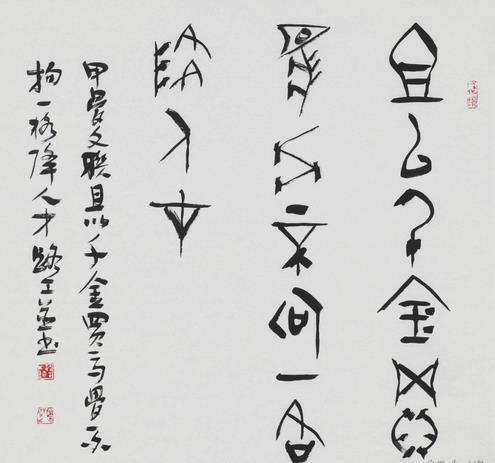 且以千金買
馬骨不拘一格
降人才
甲骨文聯且以千金買馬骨不
拘一格降人才路工書